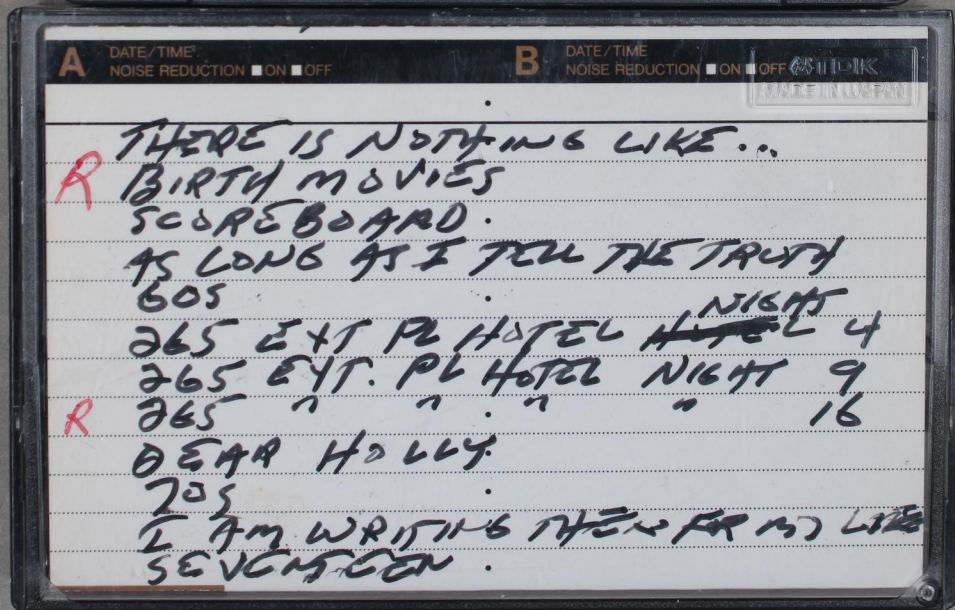 A DATE/TIME
NOISE REDUCTION ■ ON ■ OFF
B DATE/TIME
NOISE REDUCTION ■ ON ■ OFF
TDK
MADE IN JAPAN
THERE IS NOTHING LIKE...
R BIRTH MOVIES
SCOREBOARD
AS LONG AS I TELL THE TRUTH
60S
NIGHT
265 EXT PL HOTEL 4
265 EXT. PL HOTEL NIGHT 9
R 265 " " " " 16
DEAR HOLLY
70S
I AM WRITING THEM FOR MY LIFE
SEVENTEEN